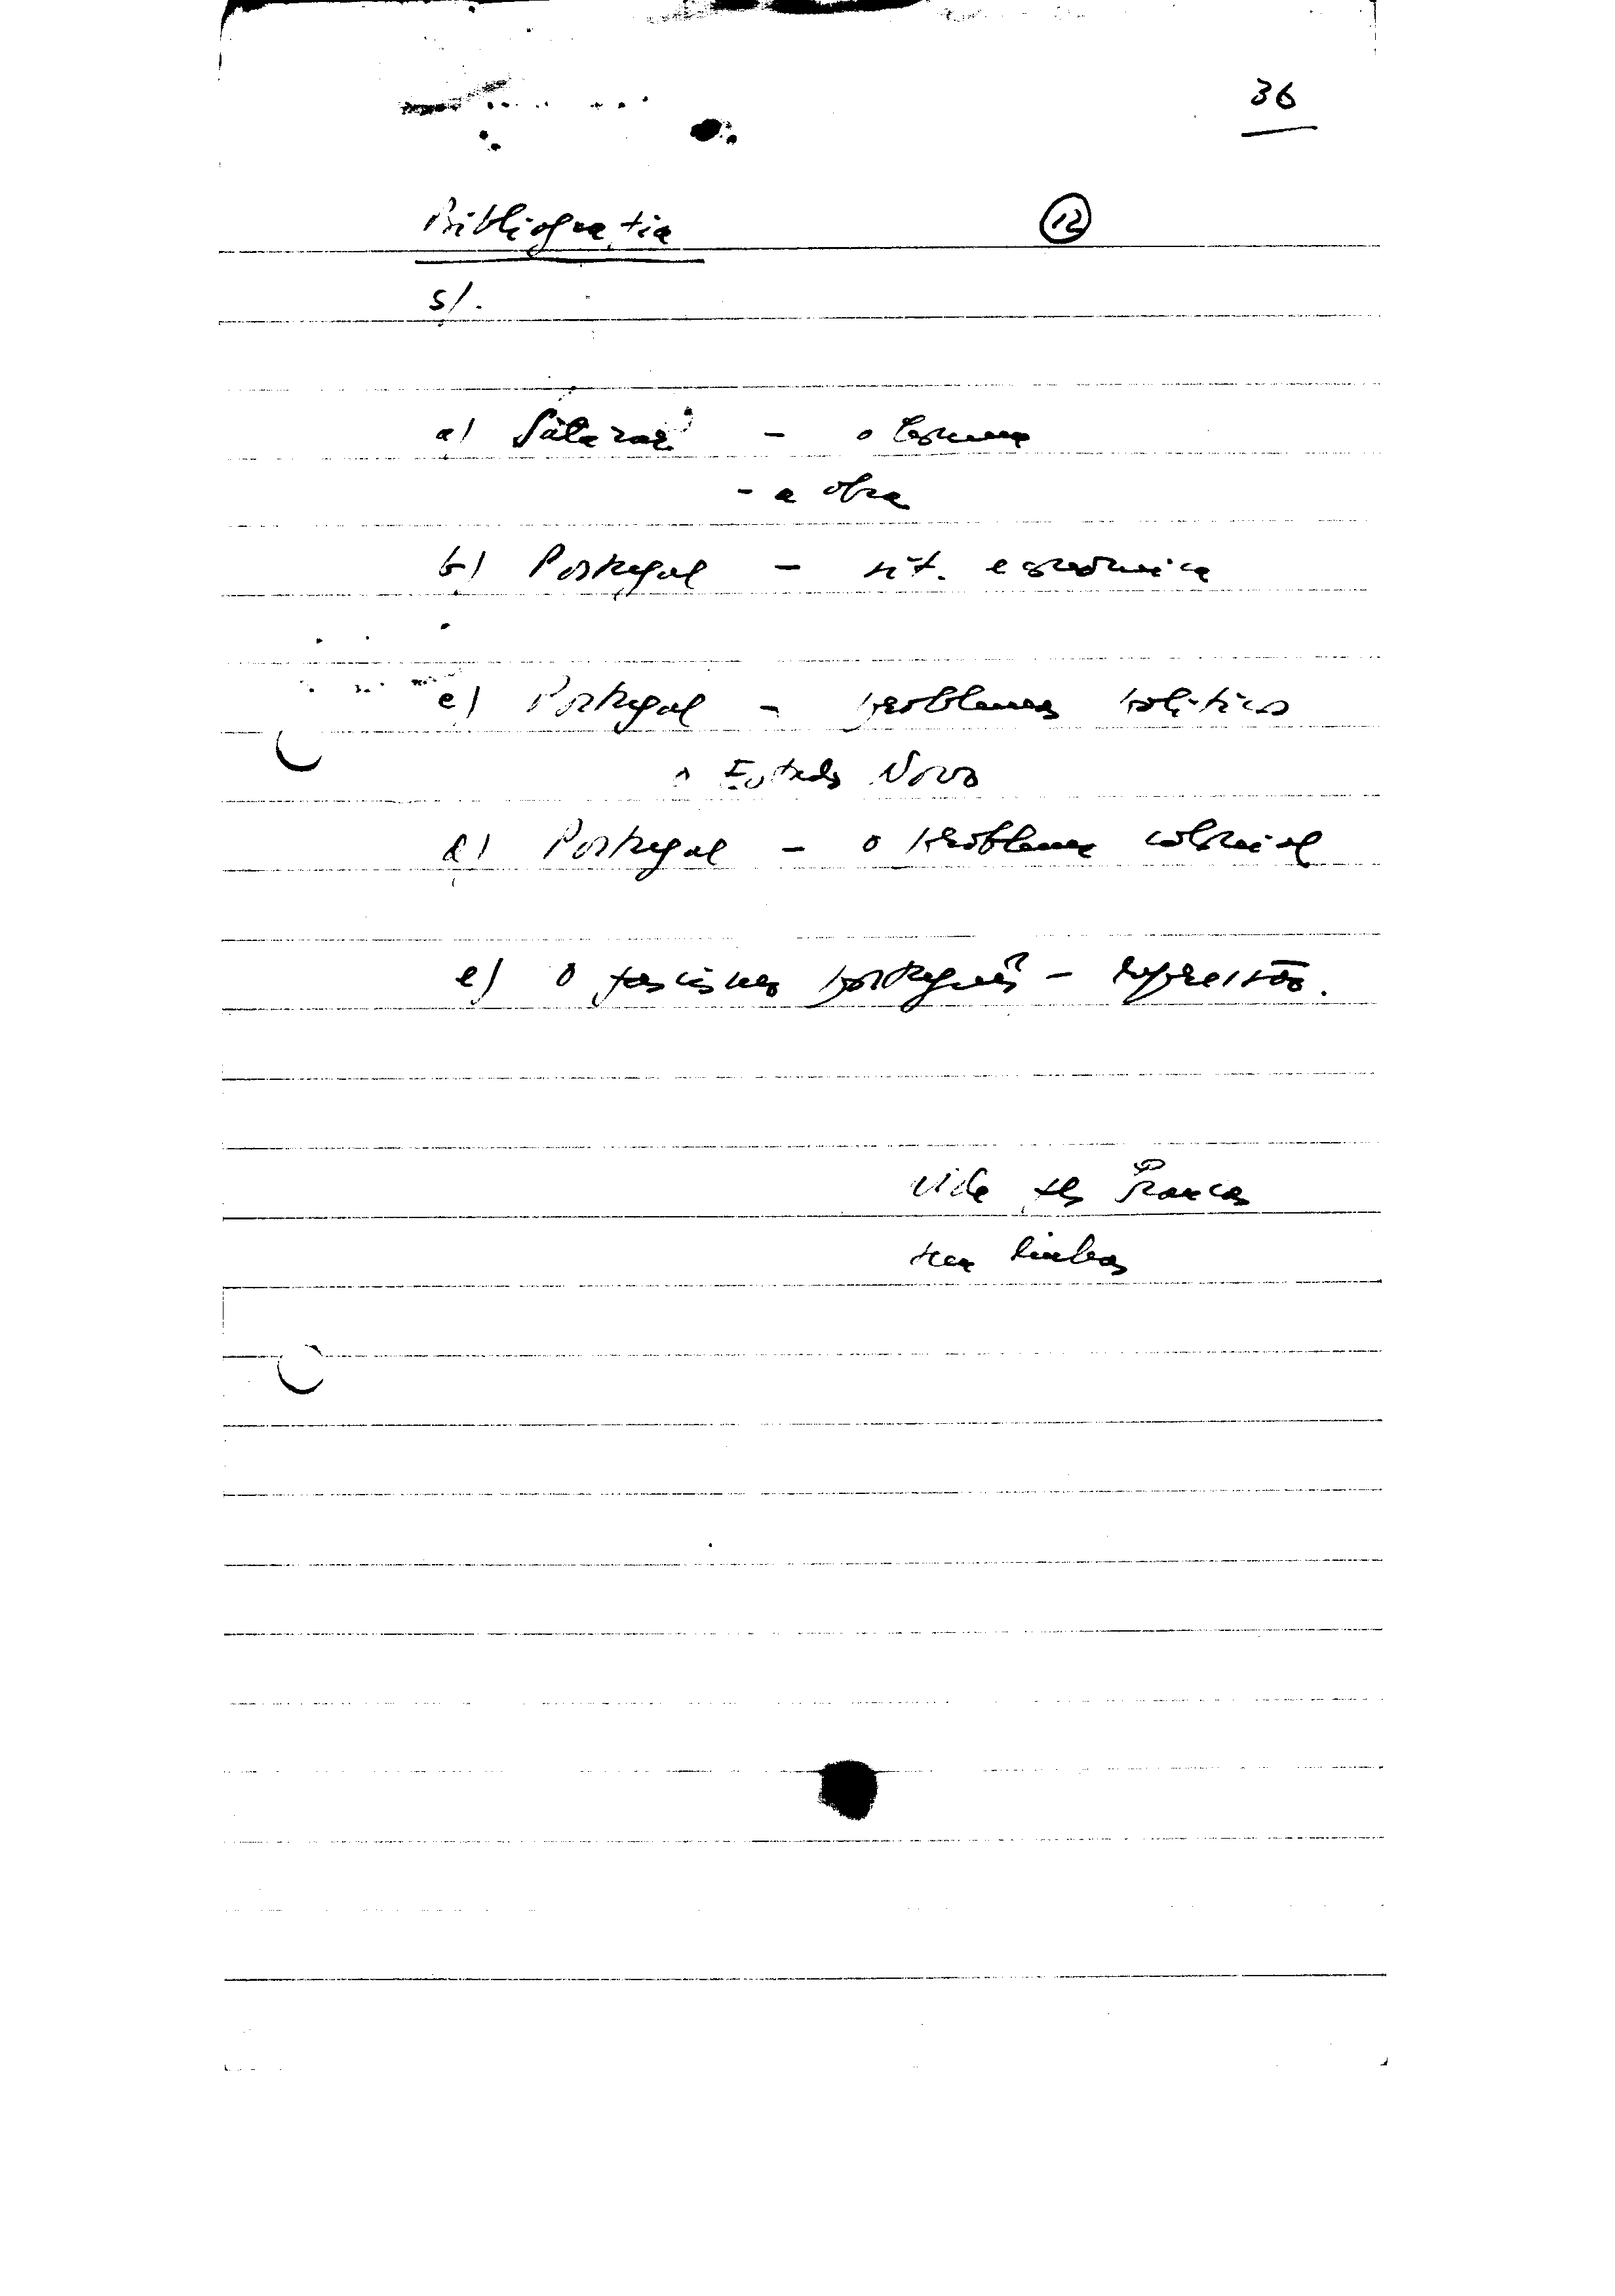 36
Bibliografia 12
s/.
a) Salazar - o homem
- a obra
b) Portugal - sit. económica
c) Portugal - problemas políticos
o Estado Novo
d) Portugal - o problema colonial
e) O fascismo português - repressão.
vide fls brancas
sem linhas